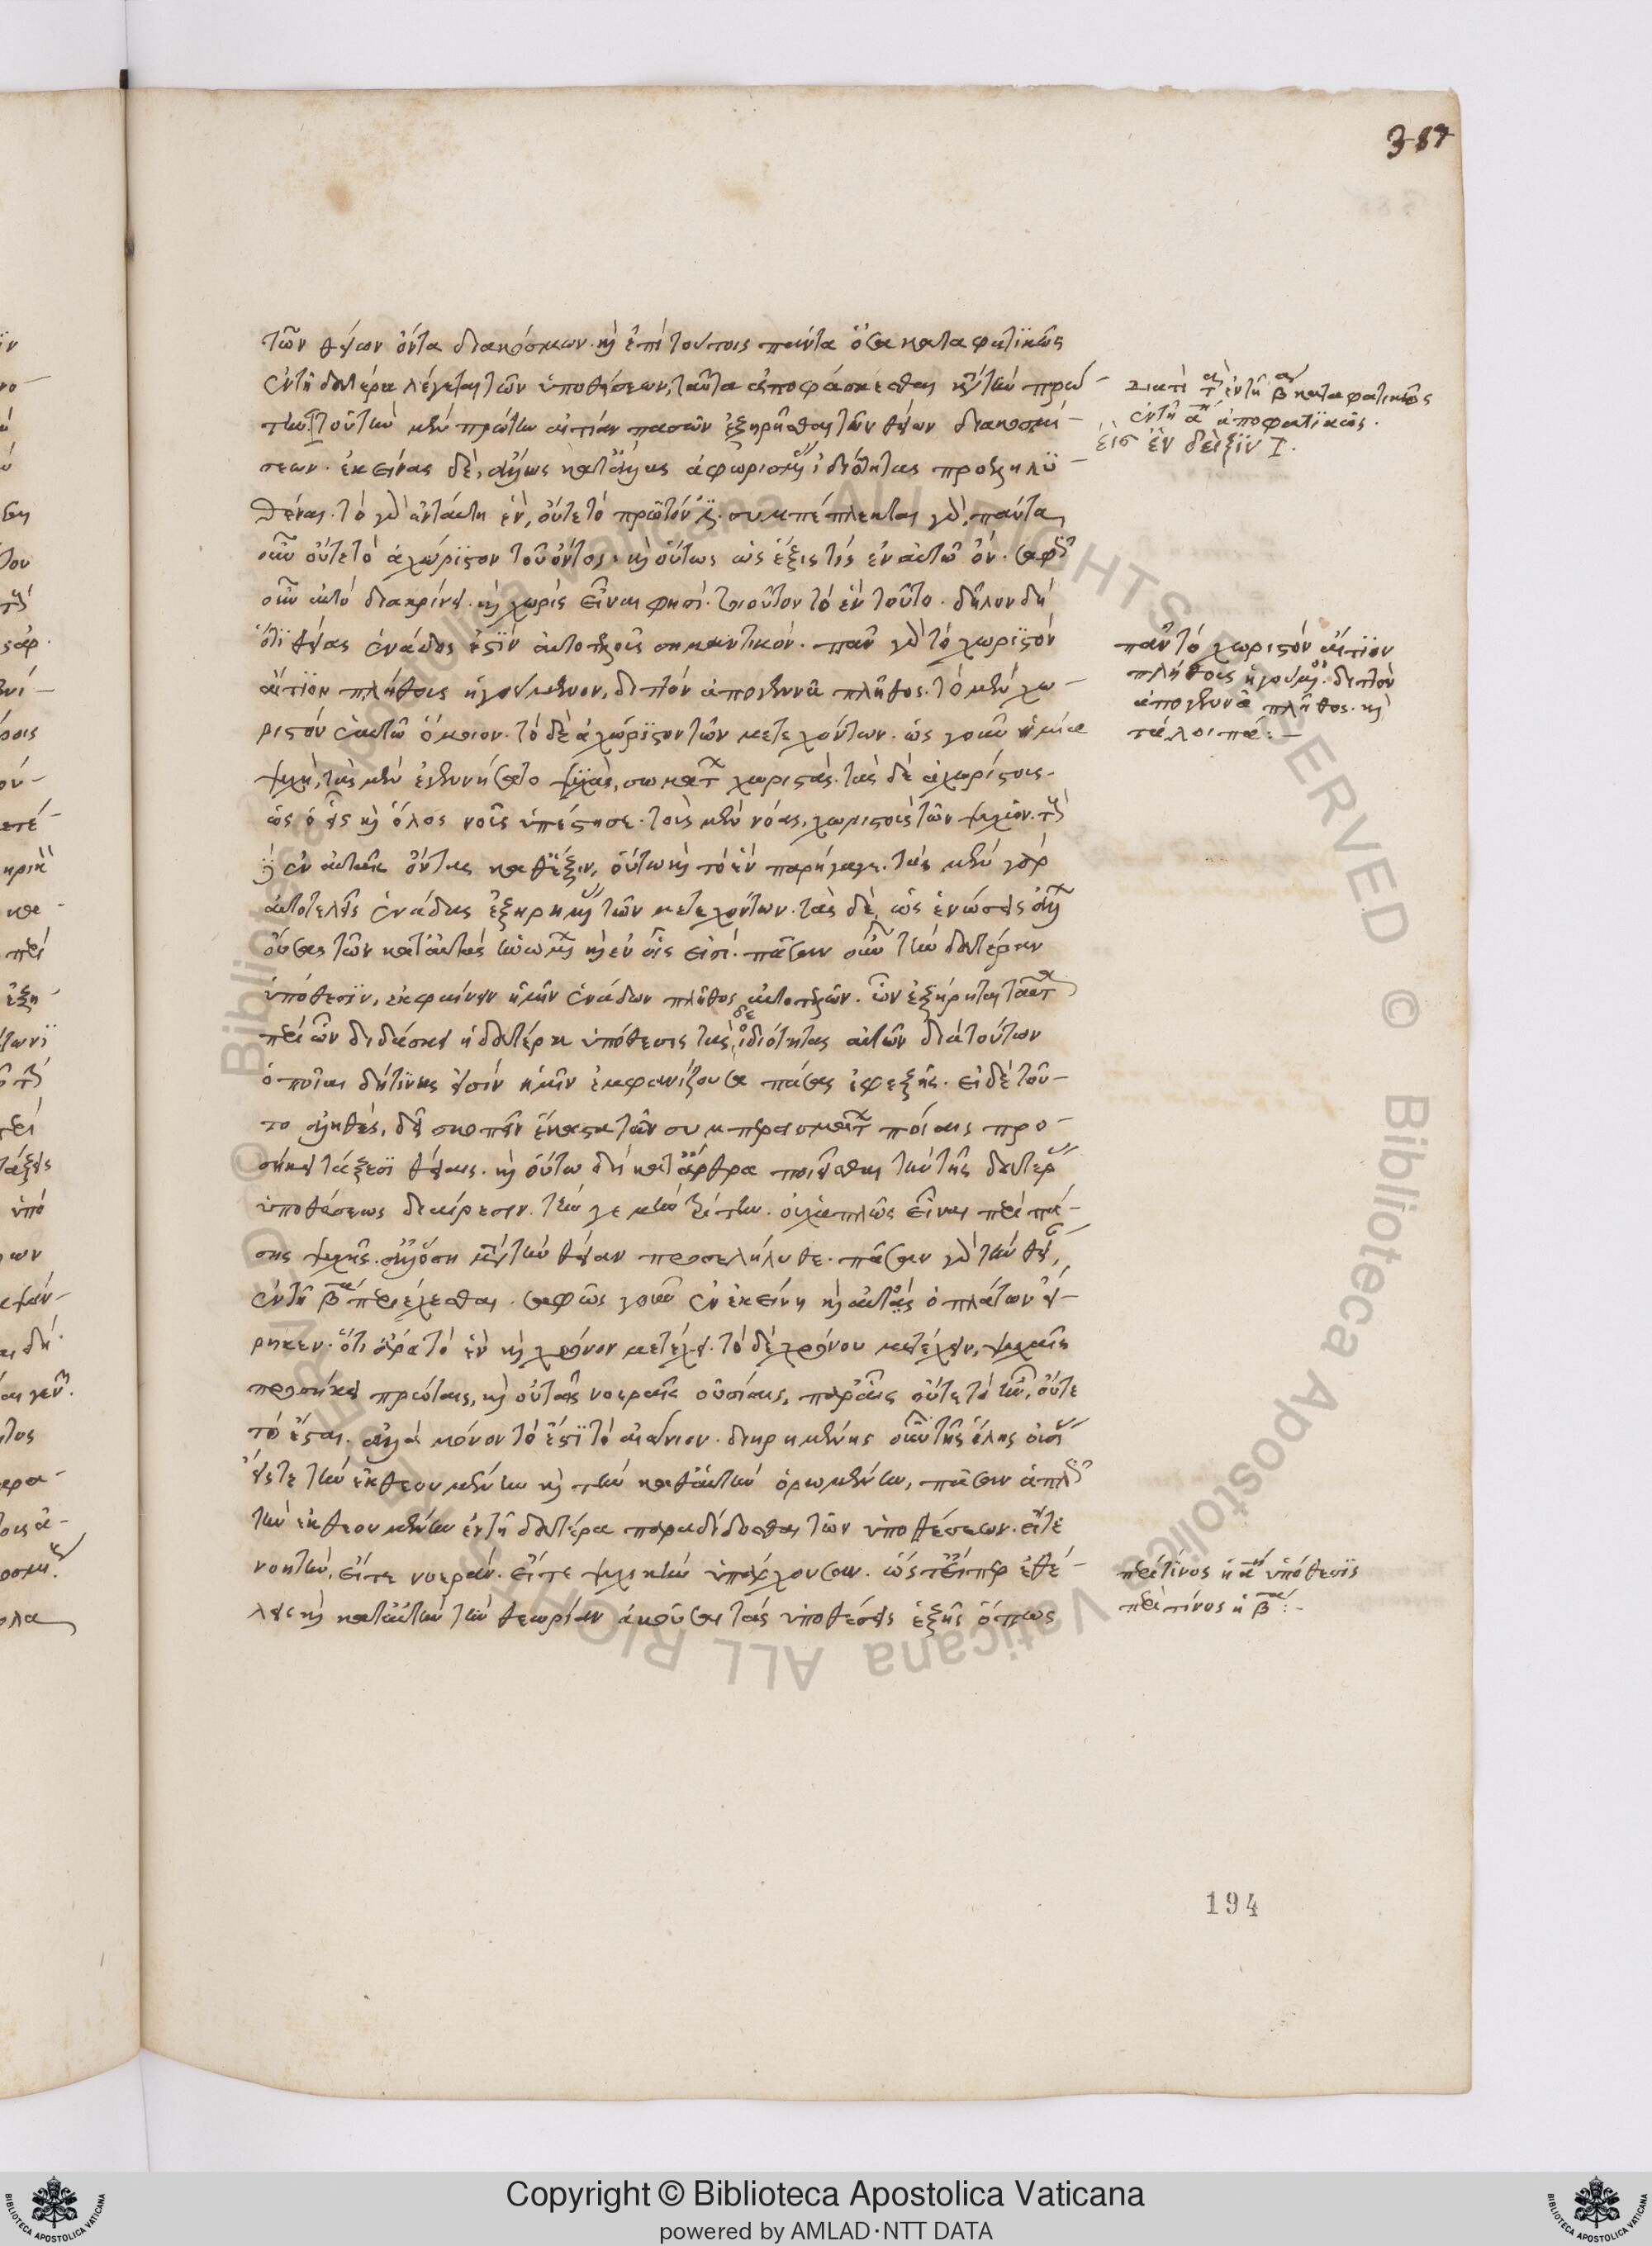 τῶν θείων ὄντα διακόσμων. καὶ ἐπὶ τούτοις πάντα ὅσα καταφατϊκῶς
ἐν τῆ δευτέρα λέγεται τῶν ὑποθέσεων, ταῦτα ἀποφάσκεσθαι κατὰ τὴν πρώ-
την τοῦ τὴν μὲν πρώτην αἰτίαν πασῶν ἐξηρῆσθαι τῶν θείων διακοσμή-
σεων. ἐκείνας δὲ, ἄλλως κατ' ἄλλας ἀφωρισμένας ἰδιότητας προεληλϋ-
θέναι. τὸ γὰρ ἐν ταύτη ἓν, οὔτε τὸ πρῶτόν ἐστι. συμπέπλεκται γὰρ, πάντα
οὖν οὔτε τὸ ἀχώριστον τοῦ ὄντος. καὶ οὕτως ὡς ἕξις τίς ἐν αὐτῶ ὄν. σαφῶς
οὖν αὐτὸ διακρίνει. καὶ χωρὶς εἶναι φησί. τοιοῦτον τὸ ἓν τοῦτο. δῆλον δὴ
ὅτϊ θείας ἑνάδος ἐστὶν αὐτοτελοῦς σημαντικόν. πᾶν γὰρ τὸ χωριστὸν
αἴτϊον πλήθους ἡγούμενον, διττὸν ἀπογεννᾶ πλῆθος. τὸ μὲν χω-
ριστὸν ἑαυτῶ ὅμοιον. τὸ δὲ ἀχώριστον τῶν μετεχόντων. ὡς γοῦν ἡ μία
ψυχὴ, τὰς μὲν ἐγεννήσατο ψυχὰς, σωμάτων χωριστάς. τὰς δὲ ἀχωρίστους.
ὡς ὁ εἷς καὶ ὅλος νοῦς ὑπέστησε. τοὺς μὲν νόας, χωριστοὺς τῶν ψυχῶν. τοὺς
δὲ ἐν αὐταῖς ὄντας καθ' ἕξιν, οὕτω καὶ τὸ ἓν παρήγαγε. τὰς μὲν γὰρ
αὐτοτελεῖς ἑνάδας ἐξηρημένας τῶν μετεχόντων. τὰς δὲ, ὡς ἑνώσεις ἄλλων
οὔσας τῶν κατ' αὐτὰς ἡνωμένων καὶ ἐν οἷς εἰσί. πᾶσαν οὖν τὴν δευτέραν
ὑπόθεσϊν, ἐκφαίνειν ἡμῖν ἑνάδων πλῆθος αὐτοτελῶν. ὧν ἐξήρηται ταῦτα
περὶ ὧν διδάσκει ἡ δευτέρα ὑπόθεσις τὰς δὲ ἰδιότητας αὐτῶν διὰ τούτων
ὁποῖαι δή τϊνες εἰσὶν ἡμῖν ἐμφανίζουσα πάσας ἐφεξῆς. εἰ δὲ τοῦ-
το ἀληθὲς, δεῖ σκοπεῖν ἕκαστα τῶν συμπερασμάτων ποίαις προ-
σήκει τάξεσϊ θείαις. καὶ οὕτω δὴ κατ' ἄρθρα ποιεῖσθαι τὴν τῆς δευτέρας
ὑποθέσεως διαίρεσιν. τήν γε μὴν τρίτην. οὐχ ἁπλῶς εἶναι περὶ πά-
σης ψυχῆς. ἀλλ' ὅση μετὰ τὴν θείαν προσελήλυθε. πᾶσαν γὰρ τὴν θείαν,
ἐν τῆ βα περιέχεσθαι. σαφῶς γοῦν ἐν ἐκείνη καὶ αὐτὸς ὁ πλάτων εἴ-
ρηκεν. ὅτι ἄρα τὸ ἓν καὶ χρόνον μετέχει. τὸ δὲ χρόνου μετέχειν, ψυχαῖς
προσήκει πρώταις, καὶ οὐ ταῖς νοεραῖς οὐσίαις, παρ' αἷς οὔτε τὸ ἦν, οὔτε
τὸ ἔσται. ἀλλὰ μόνον τὸ ἔστϊ τὸ αἰώνιον. διηρημένης οὖν τῆς ὅλης οὐσίας
εἴς τε τὴν ἐκθεουμένην καὶ τὴν καθ' αὑτὴν ὁρωμένην, πᾶσαν ἁπλῶς
τὴν ἐκθεουμένην ἐν τῆ δευτέρα παραδίδοσθαι τῶν ὑποθέσεων. εἴτε
νοητὴν, εἴτε νοεράν. εἴτε ψυχικὴν ὑπάρχουσαν. ὥστ' εἴπερ ἐθέ-
λεις καὶ κατ' αὐτὴν τὴν θεωρίαν ἀκοῦσαι τὰς ὑποθέσεις ἑξῆς ὅπως
διατὶ τὰ ἐν τῆ β καταφατικῶς
ἐν τῆ α ἀποφατϊκῶς.
εἰσ ἔν δειξϊν
πᾶν τὸ χωριστὸν αἴτϊον
πλήθους ἡγούμενον. διττὸν
ἀπογεννᾶ πλῆθος. καὶ
τὰ λοιπά:-
περὶ τίνος ἡ α ὑπόθεσϊς
περὶ τίνος ἡ β:-
387
194
Copyright © Biblioteca Apostolica Vaticana
powered by AMLAD·NTT DATA